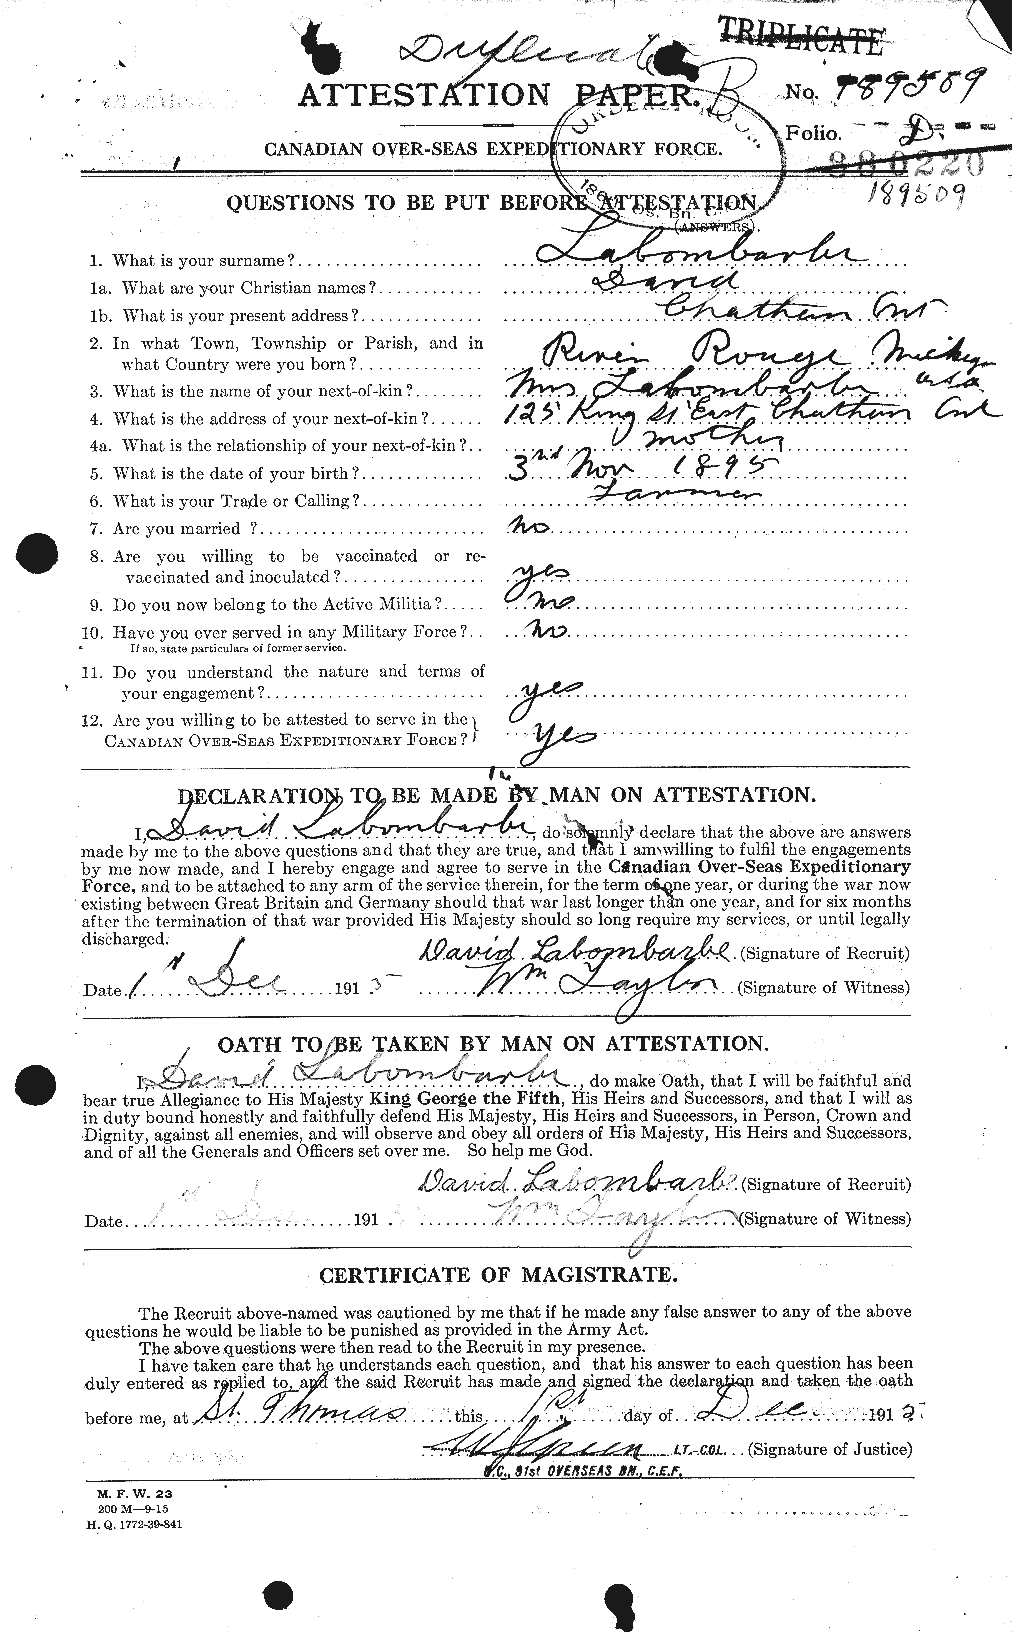 Duplicate
TRIPLICATE
ATTESTATION PAPER. B
No. 189509
Folio. D.
CANADIAN OVER-SEAS EXPEDITIONARY FORCE.
220
189509
QUESTIONS TO BE PUT BEFORE ATTESTATION.
(ANSWERS).
1. What is your surname? Labombarbe
1a. What are your Christian names? David
1b. What is your present address? Chatham Ont
2. In what Town, Township or Parish, and in
what Country were you born? River Rouge Michigan
USA
3. What is the name of your next-of-kin? Mrs Labombarbe
4. What is the address of your next-of-kin? 125 King St East Chatham Ont
4a. What is the relationship of your next-of-kin? mother
5. What is the date of your birth? 3rd Nov 1895
6. What is your Trade or Calling? Farmer
7. Are you married? no
8. Are you willing to be vaccinated or re-
vaccinated and inoculated? yes
9. Do you now belong to the Active Militia? no
10. Have you ever served in any Military Force? no
If so, state particulars of former service.
11. Do you understand the nature and terms of
your engagement? yes
12. Are you willing to be attested to serve in the
CANADIAN OVER-SEAS EXPEDITIONARY FORCE? yes
DECLARATION TO BE MADE BY MAN ON ATTESTATION.
I, David Labombarbe, do solemnly declare that the above are answers
made by me to the above questions and that they are true, and that I am willing to fulfil the engagements
by me now made, and I hereby engage and agree to serve in the Canadian Over-Seas Expeditionary
Force, and to be attached to any arm of the service therein, for the term of one year, or during the war now
existing between Great Britain and Germany should that war last longer than one year, and for six months
after the termination of that war provided His Majesty should so long require my services, or until legally
discharged.
David Labombarbe (Signature of Recruit)
Date 1st Dec 1915 Wm Taylor (Signature of Witness)
OATH TO BE TAKEN BY MAN ON ATTESTATION.
I, David Labombarbe, do make Oath, that I will be faithful and
bear true Allegiance to His Majesty King George the Fifth, His Heirs and Successors, and that I will as
in duty bound honestly and faithfully defend His Majesty, His Heirs and Successors, in Person, Crown and
Dignity, against all enemies, and will observe and obey all orders of His Majesty, His Heirs and Successors,
and of all the Generals and Officers set over me. So help me God.
David Labombarbe (Signature of Recruit)
Date 1st Dec 191 Wm Taylor (Signature of Witness)
CERTIFICATE OF MAGISTRATE.
The Recruit above-named was cautioned by me that if he made any false answer to any of the above
questions he would be liable to be punished as provided in the Army Act.
The above questions were then read to the Recruit in my presence.
I have taken care that he understands each question, and that his answer to each question has been
duly entered as replied to, and the said Recruit has made and signed the declaration and taken the oath
before me, at St. Thomas this 1st day of Dec 1915
Green LT.-COL. (Signature of Justice)
O.C., 91st OVERSEAS BN., C.E.F.
M. F. W. 23
200 M—9-15
H. Q. 1772-39-841